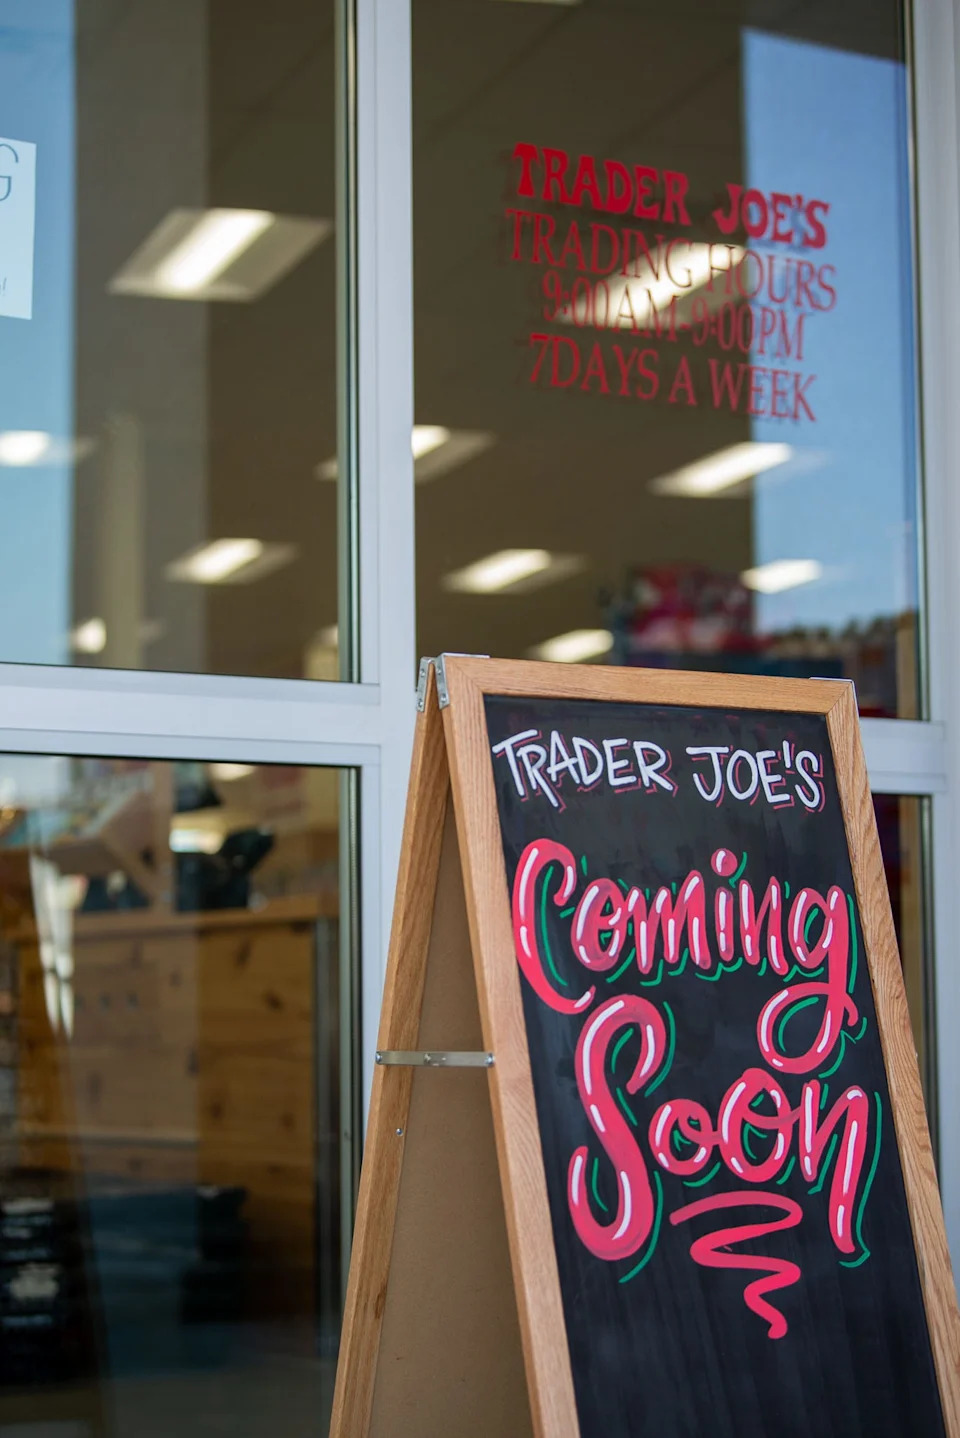 TRADER JOE'S
TRADING HOURS
9:00AM-9:00PM
7DAYS A WEEK
TRADER JOE'S
Coming
Soon